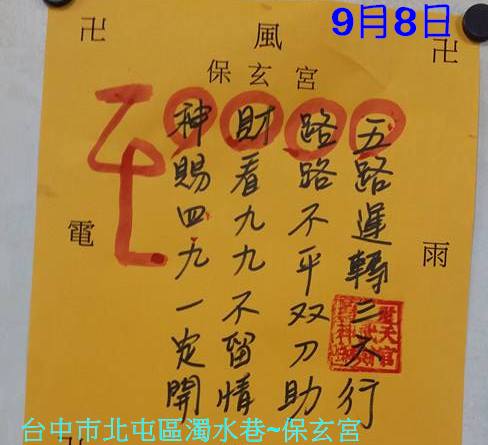 9月8日
卍 風 卍
保玄宮
五路運轉三六行
路路不平双刀助
財看九九不留情
神賜四九一定開
電
雨
台中市北屯區濁水巷~保玄宮